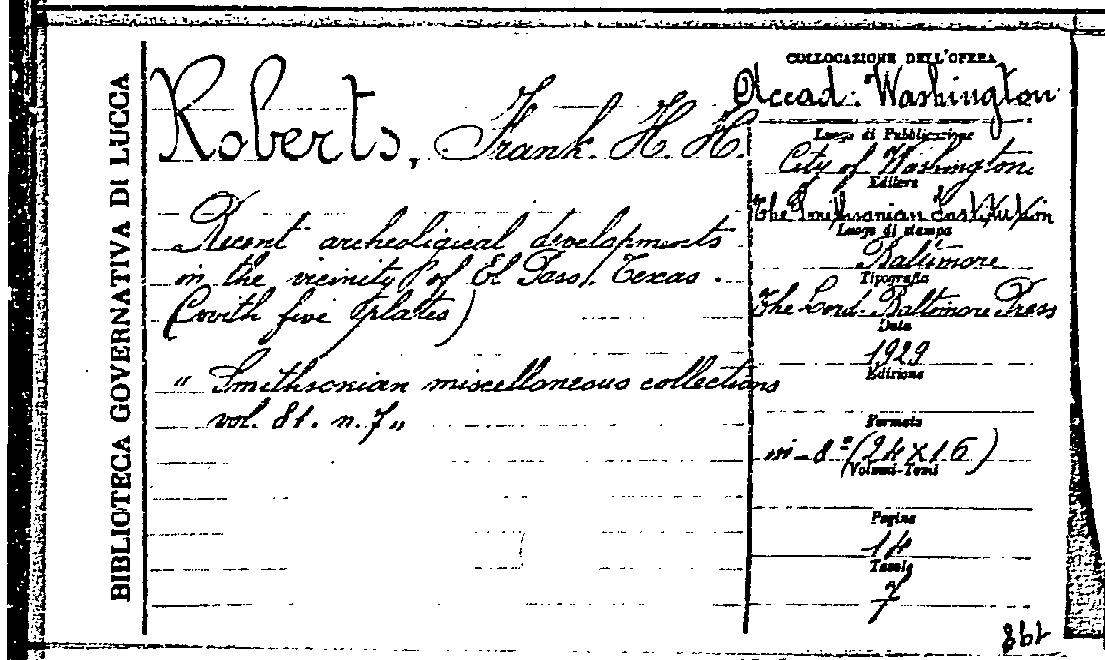 BIBLIOTECA GOVERNATIVA DI LUCCA
Roberts, Frank. H. H.
Recent archeoligical developments
in the vicinity of El Paso, Texas.
(with five plates)
" Smithsonian miscellaneous collections
vol. 81. n. 7 "
COLLOCAZIONE DELL'OPERA
Accad. Washington
Luogo di Pubblicazione
City of Washington
Editore
The Smithsonian Institution
Luogo di stampa
Baltimore
Tipografia
The Lord Baltimore Press
Data
1929
Edizione
Formato
in-8º (24x16)
Volumi-Tomi
Pagine
14
Tavole